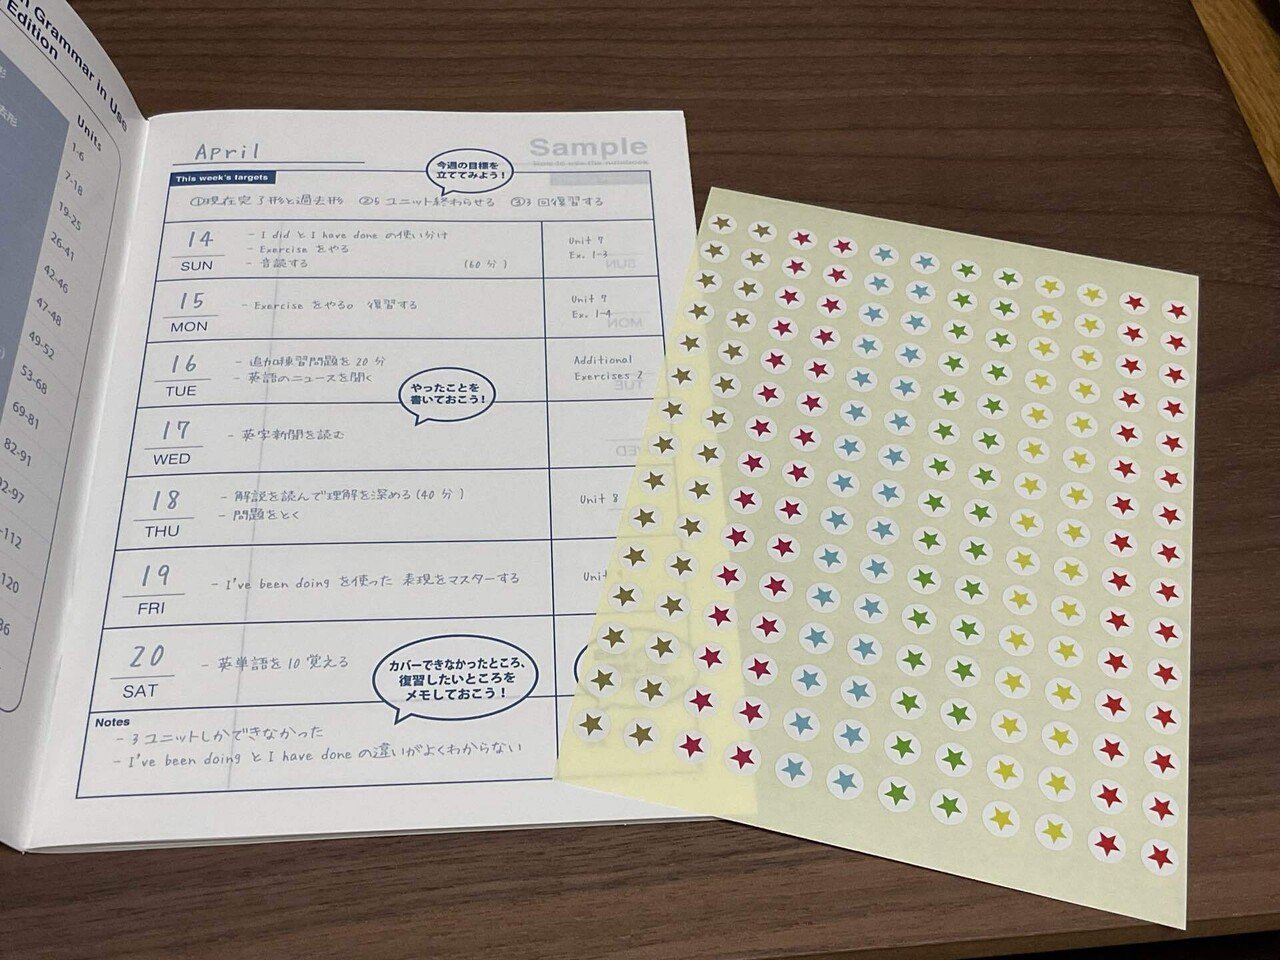 Grammar in Use
Edition
Units
1-6
7-18
19-25
26-41
42-46
47-48
49-52
53-68
69-81
82-91
April
Sample
How to use the notebook
This week's targets
今週の目標を
立ててみよう！
①現在完了形と過去形 ②5ユニット終わらせる ③3回復習する
14
SUN
- I did と I have done の使い分け
- Exercise をやる
- 音読する (60分)
Unit 7
Ex. 1-3
15
MON
- Exercise をやる。 復習する
Unit 7
Ex. 1-4
16
TUE
- 追加練習問題を20分
- 英語のニュースを聞く
Additional
Exercises 2
やったことを
書いておこう！
17
WED
- 英字新聞を読む
18
THU
- 解説を読んで理解を深める(40分)
- 問題をとく
Unit 8
19
FRI
- I've been doing を使った表現をマスターする
Unit
20
SAT
- 英単語を10覚える
カバーできなかったところ、
復習したいところを
メモしておこう！
Notes
- 3ユニットしかできなかった
- I've been doing と I have done の違いがよくわからない